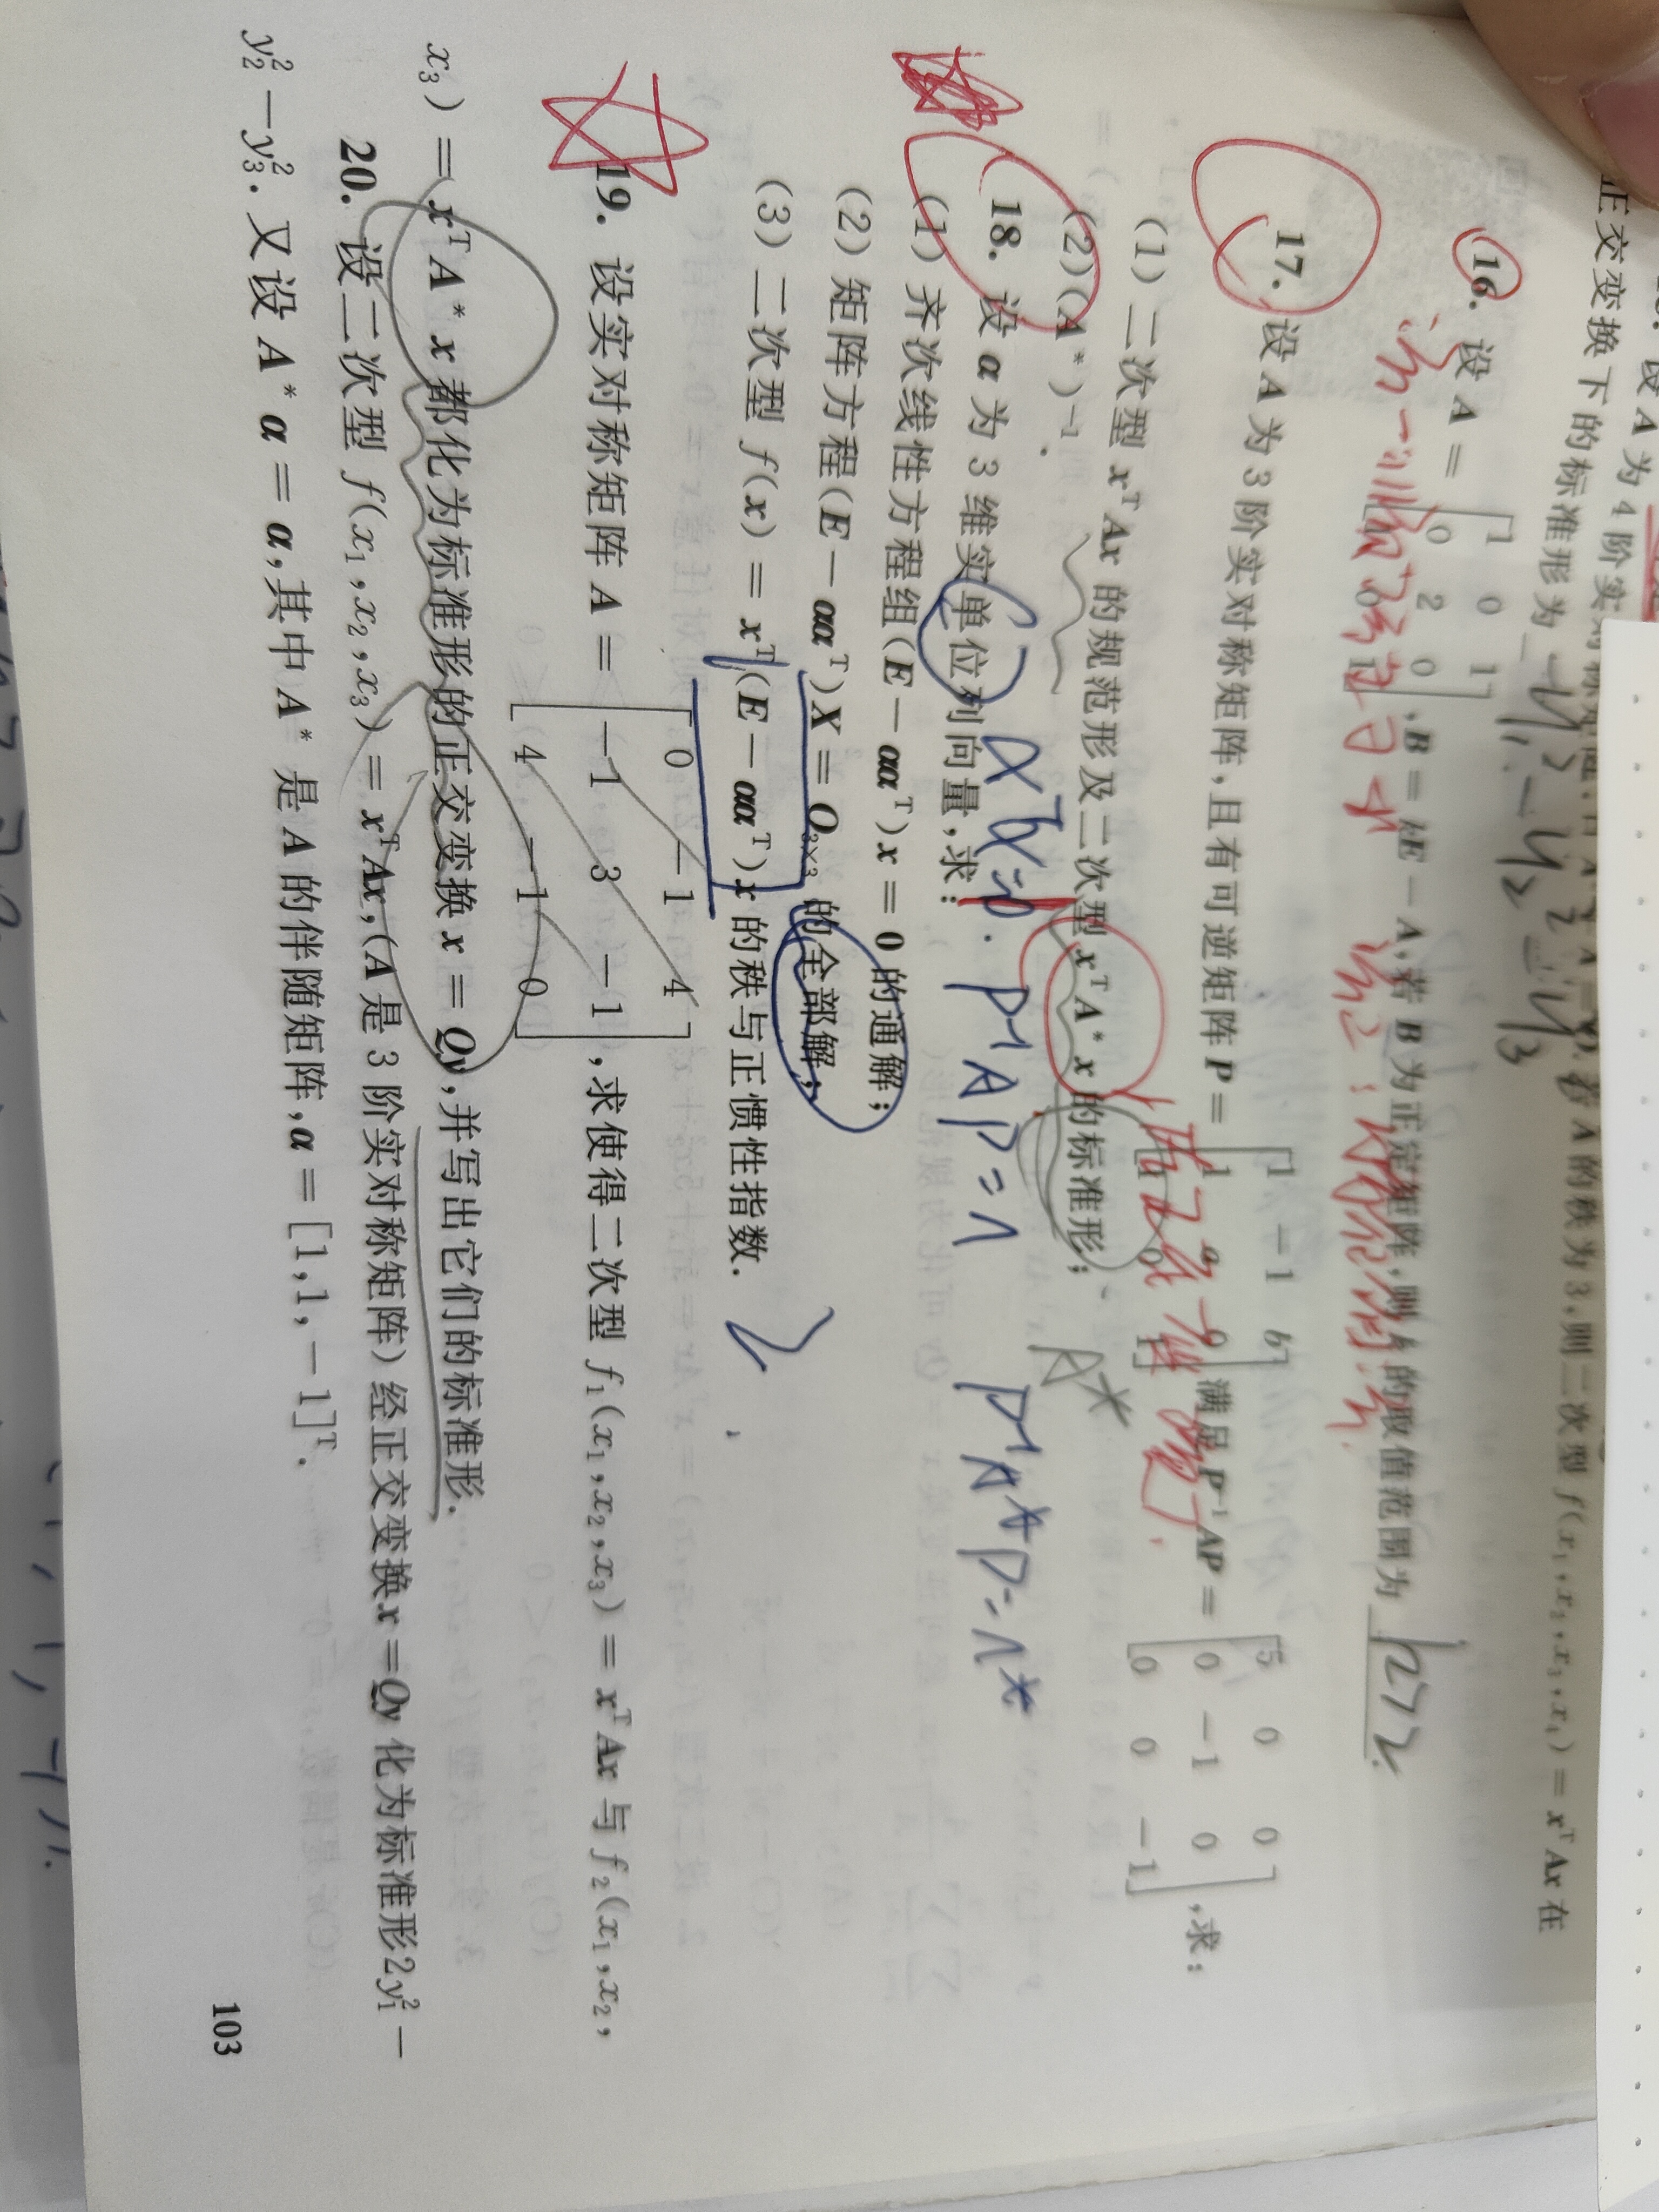 设 A 为 4 阶实对称矩阵,
若 A 的秩为 3,则二次型 f(x₁,x₂,x₃,x₄) = xᵀAx 在
正交变换下的标准形为 -y₁²-y₂²-y₃²
16. 设 A = [1 0 1; 0 2 0; 1 0 1], B = kE - A,若 B 为正定矩阵,则 k 的取值范围为 k>2.
17. 设 A 为 3 阶实对称矩阵,且有可逆矩阵 P = [1 -1 b; 1 a 0; 1 0 1] 满足 P⁻¹AP = [5 0 0; 0 -1 0; 0 0 -1],求:
(1) 二次型 xᵀAx 的规范形及二次型 xᵀA*x 的标准形;
A*
(2) (A*)⁻¹.
18. 设 α 为 3 维实单位列向量,求:
P⁻¹AP=Λ P⁻¹A*P=Λ*
(1) 齐次线性方程组(E - ααᵀ)x = 0 的通解;
(2) 矩阵方程(E - ααᵀ)X = O₃ₓ₃ 的全部解;
(3) 二次型 f(x) = xᵀ(E - ααᵀ)x 的秩与正惯性指数. 2
19. 设实对称矩阵 A = [0 -1 4; -1 3 -1; 4 -1 0],求使得二次型 f₁(x₁,x₂,x₃) = xᵀAx 与 f₂(x₁,x₂,
x₃) = xᵀA*x 都化为标准形的正交变换 x = Qy,并写出它们的标准形.
20. 设二次型 f(x₁,x₂,x₃) = xᵀAx,(A 是 3 阶实对称矩阵) 经正交变换 x = Qy 化为标准形 2y₁² -
y₂² - y₃². 又设 A*α = α,其中 A* 是 A 的伴随矩阵,α = [1,1,-1]ᵀ.
103